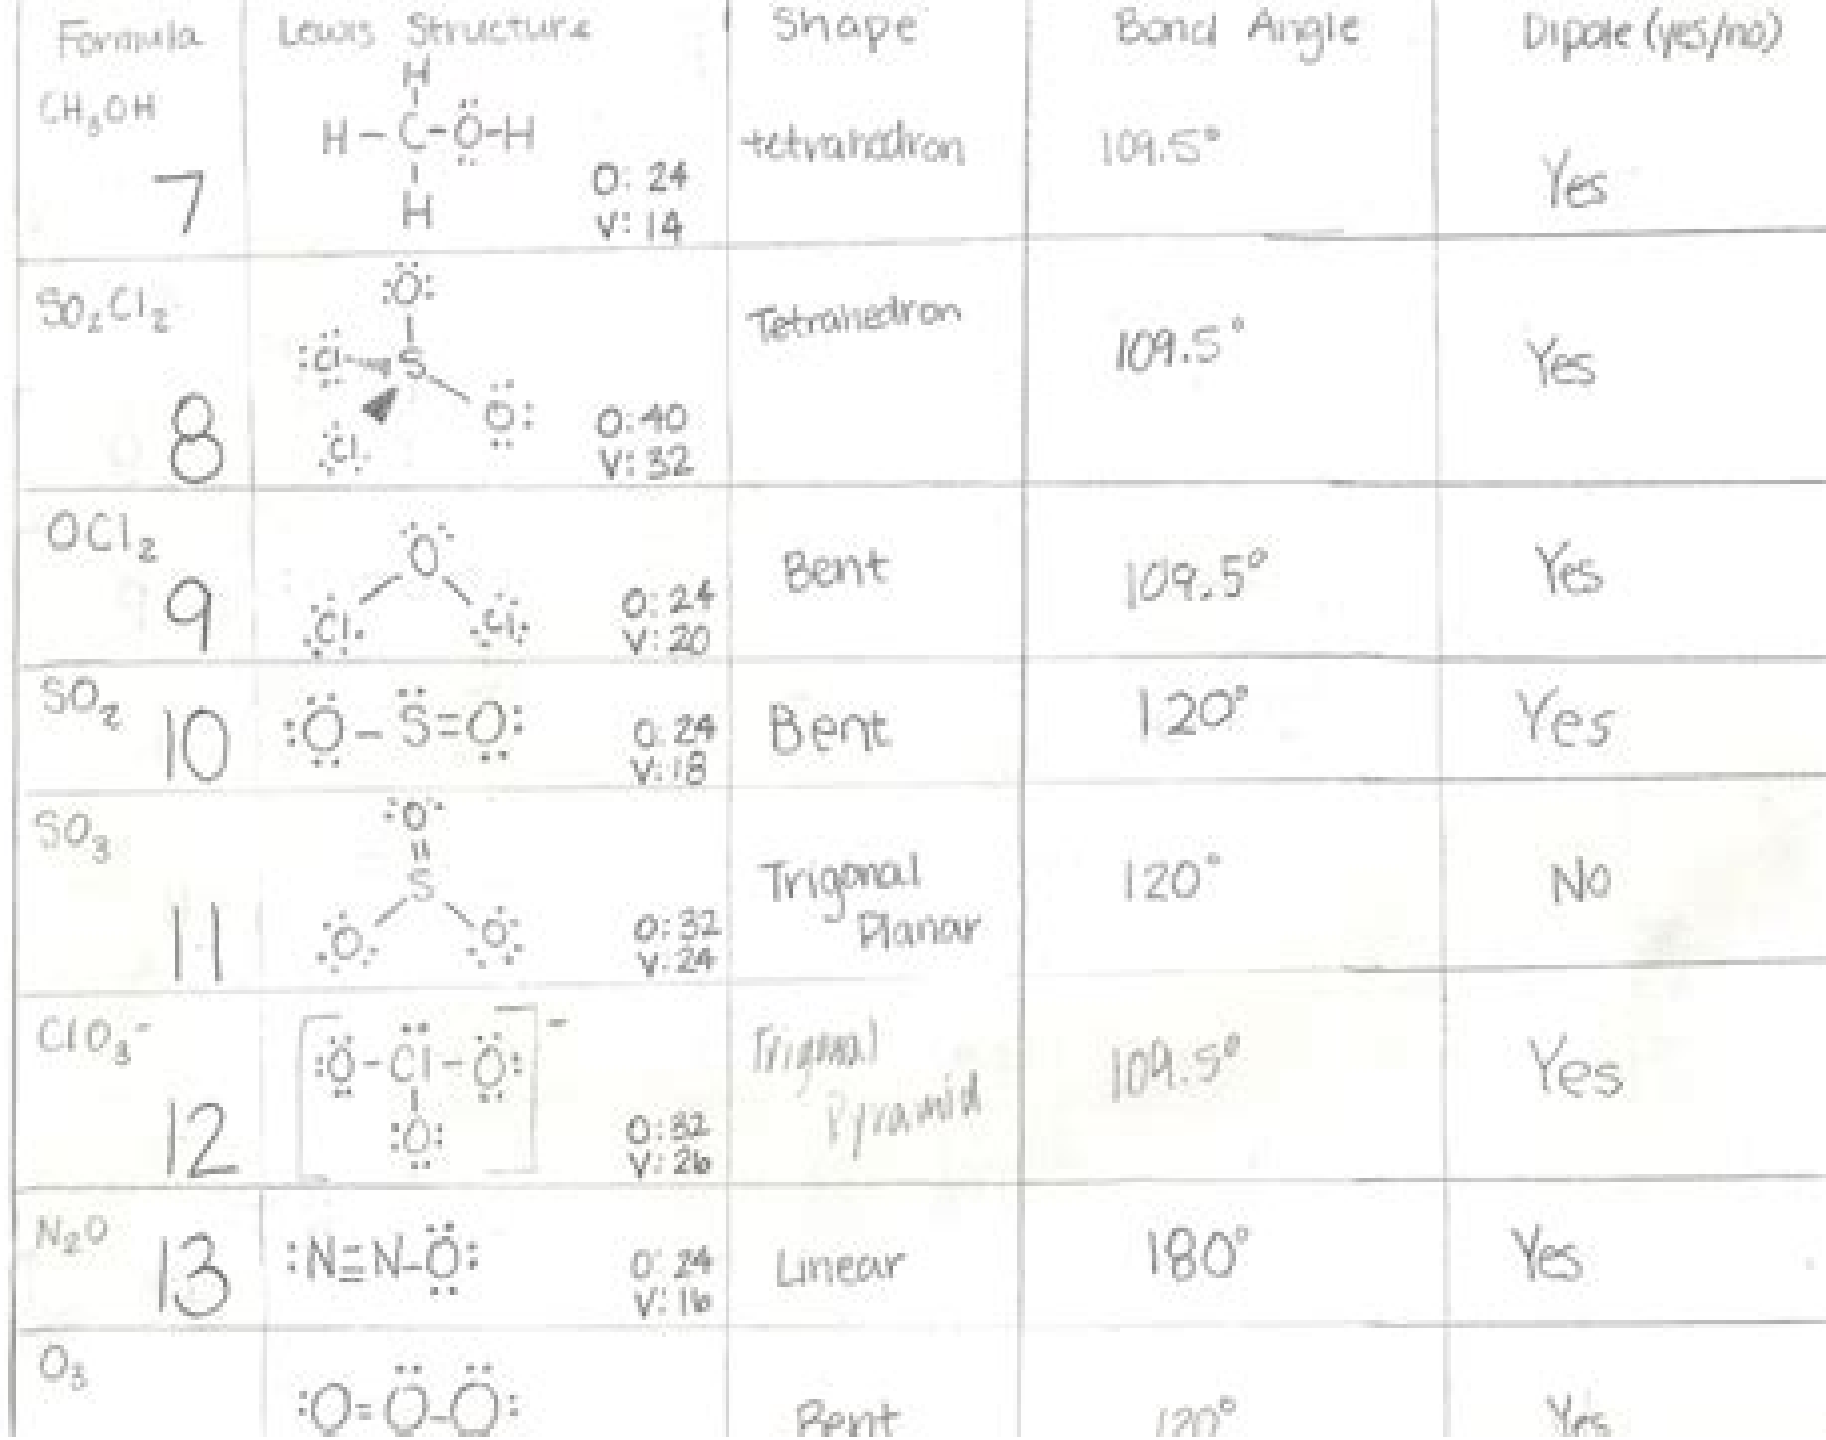 Formula Lewis Structure Shape Bond Angle Dipole (yes/no)
CH₃OH
7
H
H-C-Ö-H
H
O: 24
V: 14
tetrahedron
109.5°
Yes
SO₂Cl₂
8
:Ö:
:Cl S
Cl O:
O:40
V:32
Tetrahedron
109.5°
Yes
OCl₂
9
O
Cl Cl:
O:24
V:20
Bent
109.5°
Yes
SO₂
10
:Ö-S̈=O:
O:24
V:18
Bent
120°
Yes
SO₃
11
:O:
S
O O
O:32
V:24
Trigonal
Planar
120°
No
ClO₃⁻
12
[:Ö-C̈l-Ö:]⁻
:O:
O:32
V:26
Trigonal
Pyramid
109.5°
Yes
N₂O
13
:N≡N-Ö:
O:24
V:16
Linear
180°
Yes
O₃
:O=Ö-Ö:
Bent
120°
Yes